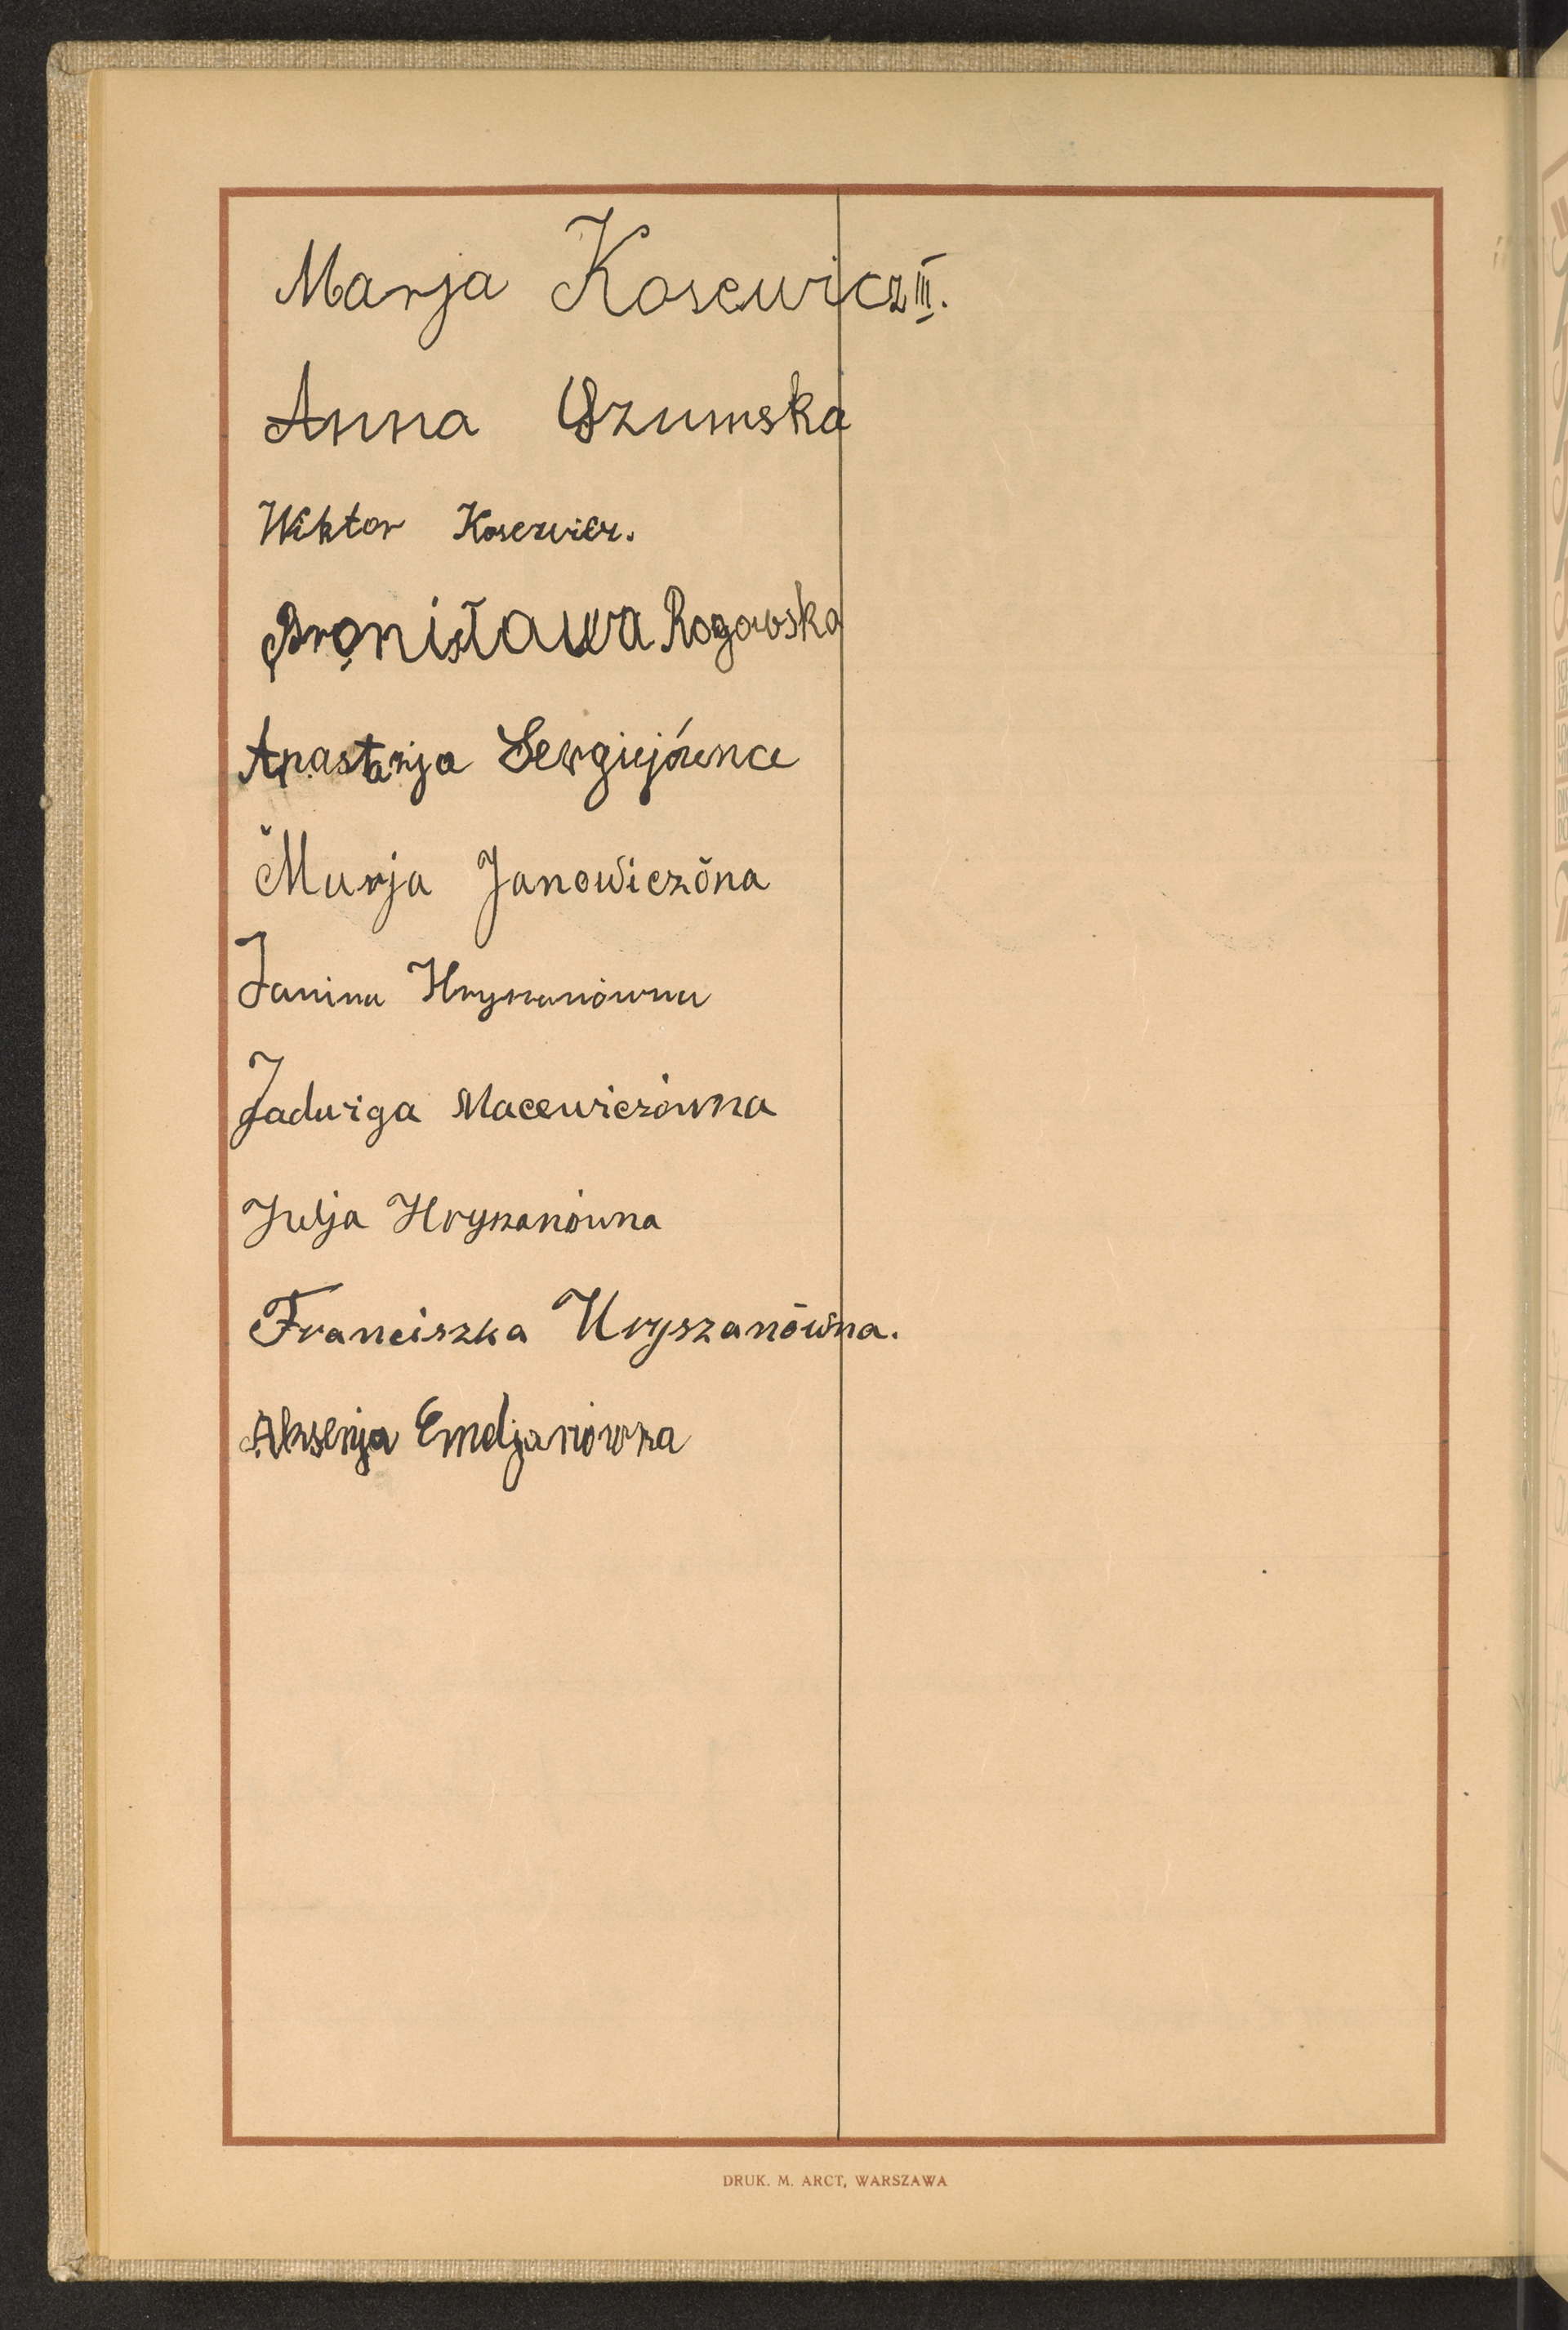 Marja Kosewicz III.
Anna Szumska
Wiktor Kosewicz.
Bronisława Rogowska
Anastazja Sergiejówna
Marja Janowiczówna
Janina Hryszanówna
Jadwiga Macewiczówna
Julja Hryszanówna
Franciszka Hryszanówna.
Aksenja Emeljanówna
DRUK. M. ARCT, WARSZAWA